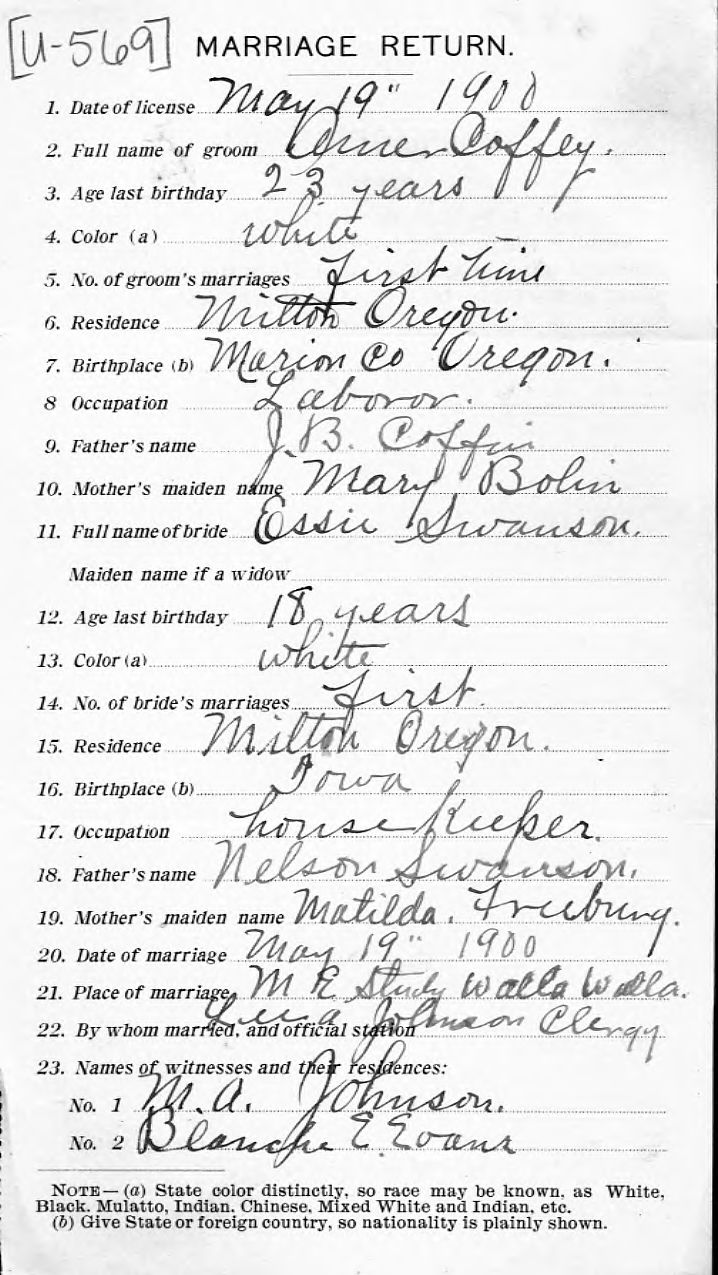 [U-569] MARRIAGE RETURN.
1. Date of license May 19" 1900
2. Full name of groom Omer Coffey.
3. Age last birthday 23 years
4. Color (a) white
5. No. of groom's marriages first time
6. Residence Milton Oregon.
7. Birthplace (b) Marion Co Oregon.
8 Occupation Laboror.
9. Father's name J. B. Coffin
10. Mother's maiden name Mary Bolin
11. Full name of bride Essie Swanson.
Maiden name if a widow
12. Age last birthday 18 years
13. Color (a) white
14. No. of bride's marriages first
15. Residence Milton Oregon.
16. Birthplace (b) Iowa
17. Occupation house Keeper.
18. Father's name Nelson Swanson.
19. Mother's maiden name Matilda. Freeburg.
20. Date of marriage May 19" 1900
21. Place of marriage M E Study Walla Walla.
22. By whom married, and official station Johnson Clergy
23. Names of witnesses and their residences:
No. 1 M. A. Johnson.
No. 2 Blanche E. Evans
NOTE—(a) State color distinctly, so race may be known, as White,
Black, Mulatto, Indian, Chinese, Mixed White and Indian, etc.
(b) Give State or foreign country, so nationality is plainly shown.